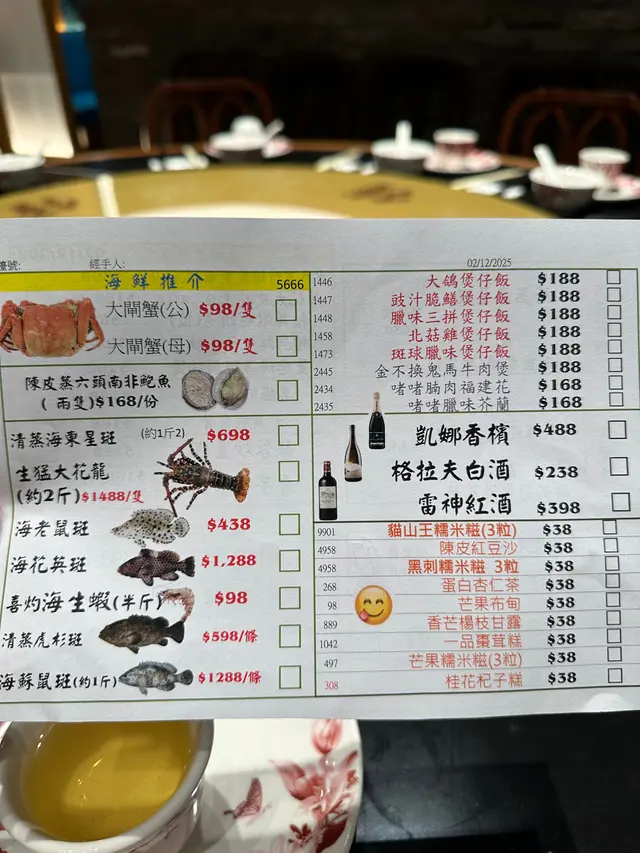 檯號:
經手人:
02/12/2025
海鮮推介 5666
大閘蟹(公) $98/隻
大閘蟹(母) $98/隻
陳皮蒸六頭南非鮑魚
( 兩隻)$168/份
清蒸海東星斑 (約1斤2) $698
生猛大花龍
(約2斤) $1488/隻
海老鼠斑 $438
海花英斑 $1,288
喜灼海生蝦(半斤) $98
清蒸虎杉斑 $598/條
海蘇鼠斑(約1斤) $1288/條
1446 大鴿煲仔飯 $188
1447 豉汁脆鱔煲仔飯 $188
1448 臘味三拼煲仔飯 $188
1458 北菇雞煲仔飯 $188
1473 斑球臘味煲仔飯 $188
2445 金不換鬼馬牛肉煲 $188
2434 啫啫腩肉福建花 $168
2435 啫啫臘味芥蘭 $168
凱娜香檳 $488
格拉夫白酒 $238
雷神紅酒 $398
9901 貓山王糯米糍(3粒) $38
4958 陳皮紅豆沙 $38
4958 黑刺糯米糍 3粒 $38
268 蛋白杏仁茶 $38
98 芒果布甸 $38
889 香芒楊枝甘露 $38
1042 一品棗茸糕 $38
497 芒果糯米糍(3粒) $38
308 桂花杞子糕 $38